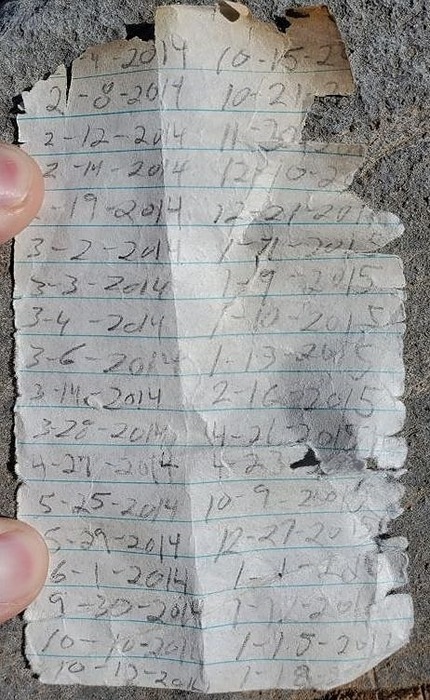 -2014 10-15-2
2-8-2014 10-21-2
2-12-2014 11-20
2-14-2014 12-10-2
-19-2014 12-21-201
3-2-2014 2015
3-3-2014 1-9-2015
3-4-2014 1-10-2015
3-6-2014 1-13-2015
3-14-2014 2-16-2015
3-28-2014 4-21-2015
2014 4-23
5-25-2014 10-9
5-29-2014 12-27-20
6-1-2014
9-30-2014
10-10-201
10-12-201